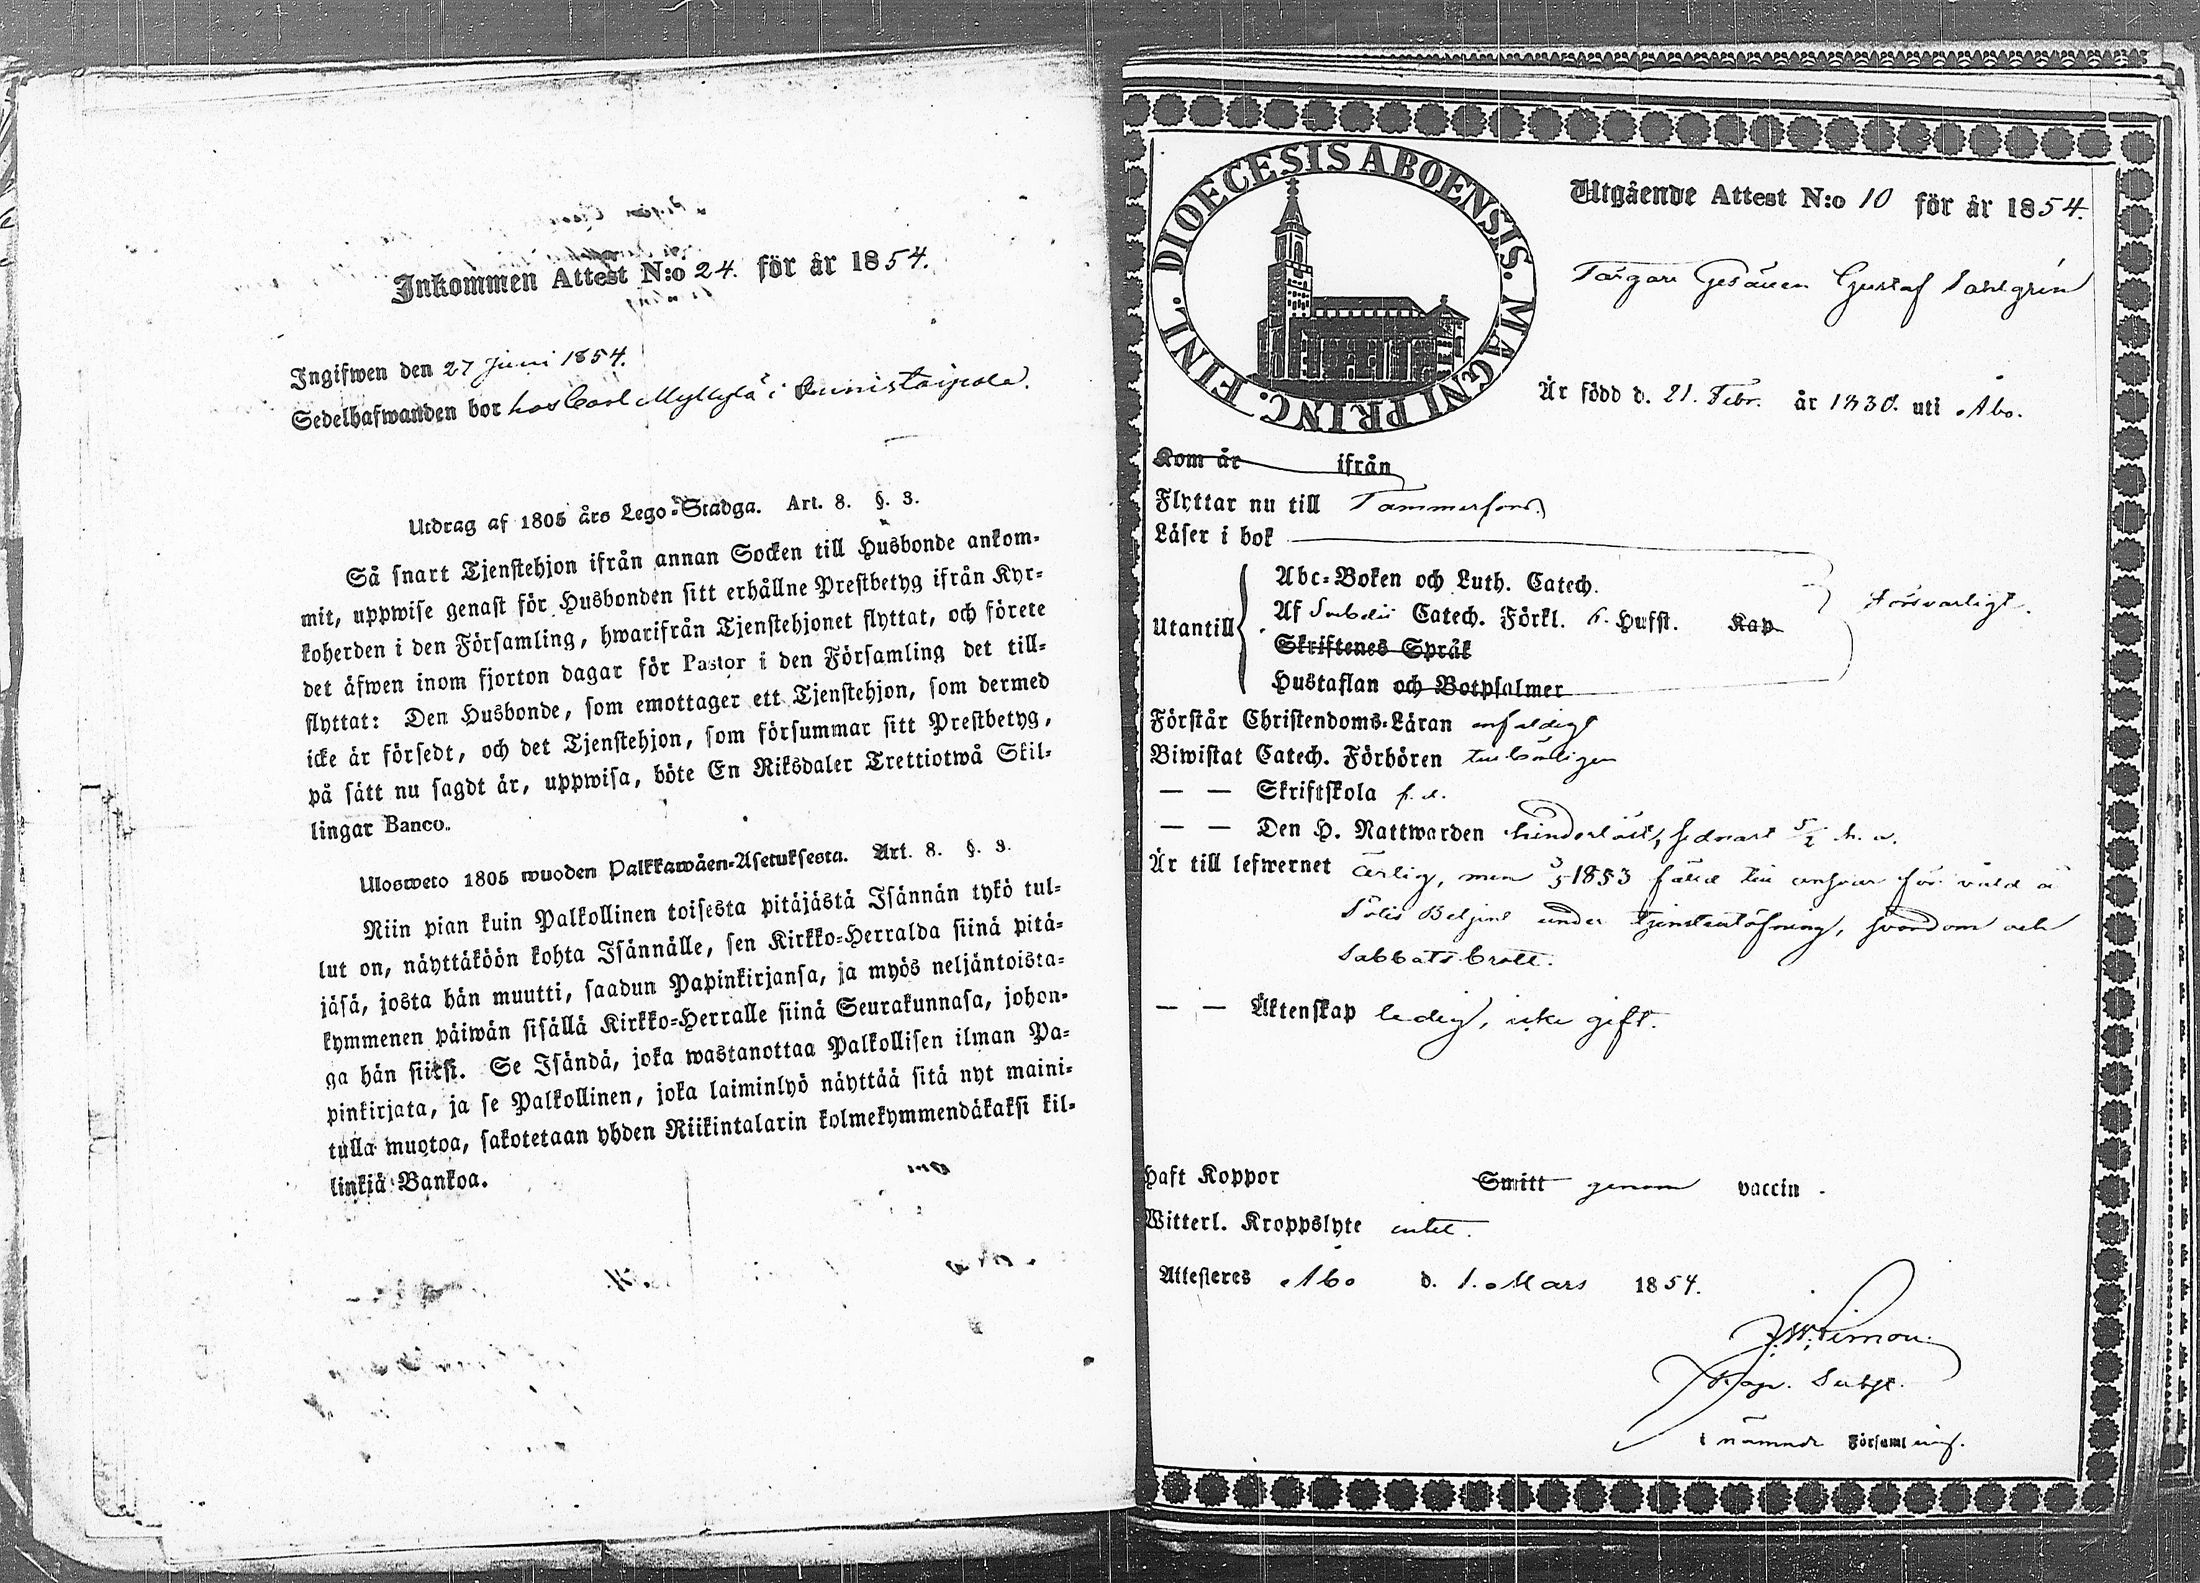 Inkommen Attest N:o 24. för år 1854.
Ingifwen den 27 Juni 1854.
Sedelhafwanden bor hos Carl Myllylä i
Utdrag af 1805 års Lego-Stadga. Art. 8. §. 3.
Så snart Tjenstehjon ifrån annan Socken till Husbonde ankom-
mit, uppwise genast för Husbonden sitt erhållne Prestbetyg ifrån Kyr-
koherden i den Församling, hwarifrån Tjenstehjonet flyttat, och förete
det äfwen inom fjorton dagar för Pastor i den Församling det till-
flyttat: Den Husbonde, som emottager ett Tjenstehjon, som dermed
icke är försedt, och det Tjenstehjon, som försummar sitt Prestbetyg,
på sätt nu sagdt är, uppwisa, böte En Riksdaler Trettiotwå Skil-
lingar Banco.
Ulosweto 1805 wuoden Palkkawäen-Asetuksesta. Art. 8. §. 3.
Niin pian kuin Palkollinen toisesta pitäjästä Isännän tykö tul-
lut on, näyttäköön kohta Isännälle, sen Kirkko-Herralda siinä pitä-
jäsä, josta hän muutti, saadun Papinkirjansa, ja myös neljäntoista-
kymmenen päiwän sisällä Kirkko-Herralle siinä Seurakunnasa, johon-
ga hän siirsi. Se Isändä, joka wastanottaa Palkollisen ilman Pa-
pinkirjata, ja se Palkollinen, joka laiminlyö näyttää sitä nyt maini-
tulla muotoa, sakotetaan yhden Riikintalarin kolmekymmendäkaksi kil-
linkiä Bankoa.
DIOECESIS ABOENSIS. MAGNI PRINC. FINL.
Utgående Attest N:o 10 för år 1854.
Färgare Gesällen Gustaf Sahlgrén
Är född d. 21. Febr. år 1830. uti Åbo.
Kom år ifrån
Flyttar nu till Tammerfors.
Läser i bok
Abc-Boken och Luth. Catech.
Utantill Af Svebelii Catech. Förkl. 6. Hufst. Kap försvarligt.
Skriftenes Språk
Hustaflan och Botpsalmer
Förstår Christendoms-Läran enfaldigt
Biwistat Catech. Förhören tillbörligen
— — Skriftskola f. d.
— — Den H. Nattwarden hinderlöst, sednast 5/2 h. a.
Är till lefwernet ärlig, men 3/5 1853 fälld till answar för våld å
Polis Betjent under tjenstutöfning, svordom och
Sabbatsbrott.
— — Äktenskap ledig, icke gift.
Haft Koppor Smitt genom vaccin.
Witterl. Kroppslyte intet.
Attesteres Åbo d. 1. Mars 1854.
Subst.
i nämnde Församling.